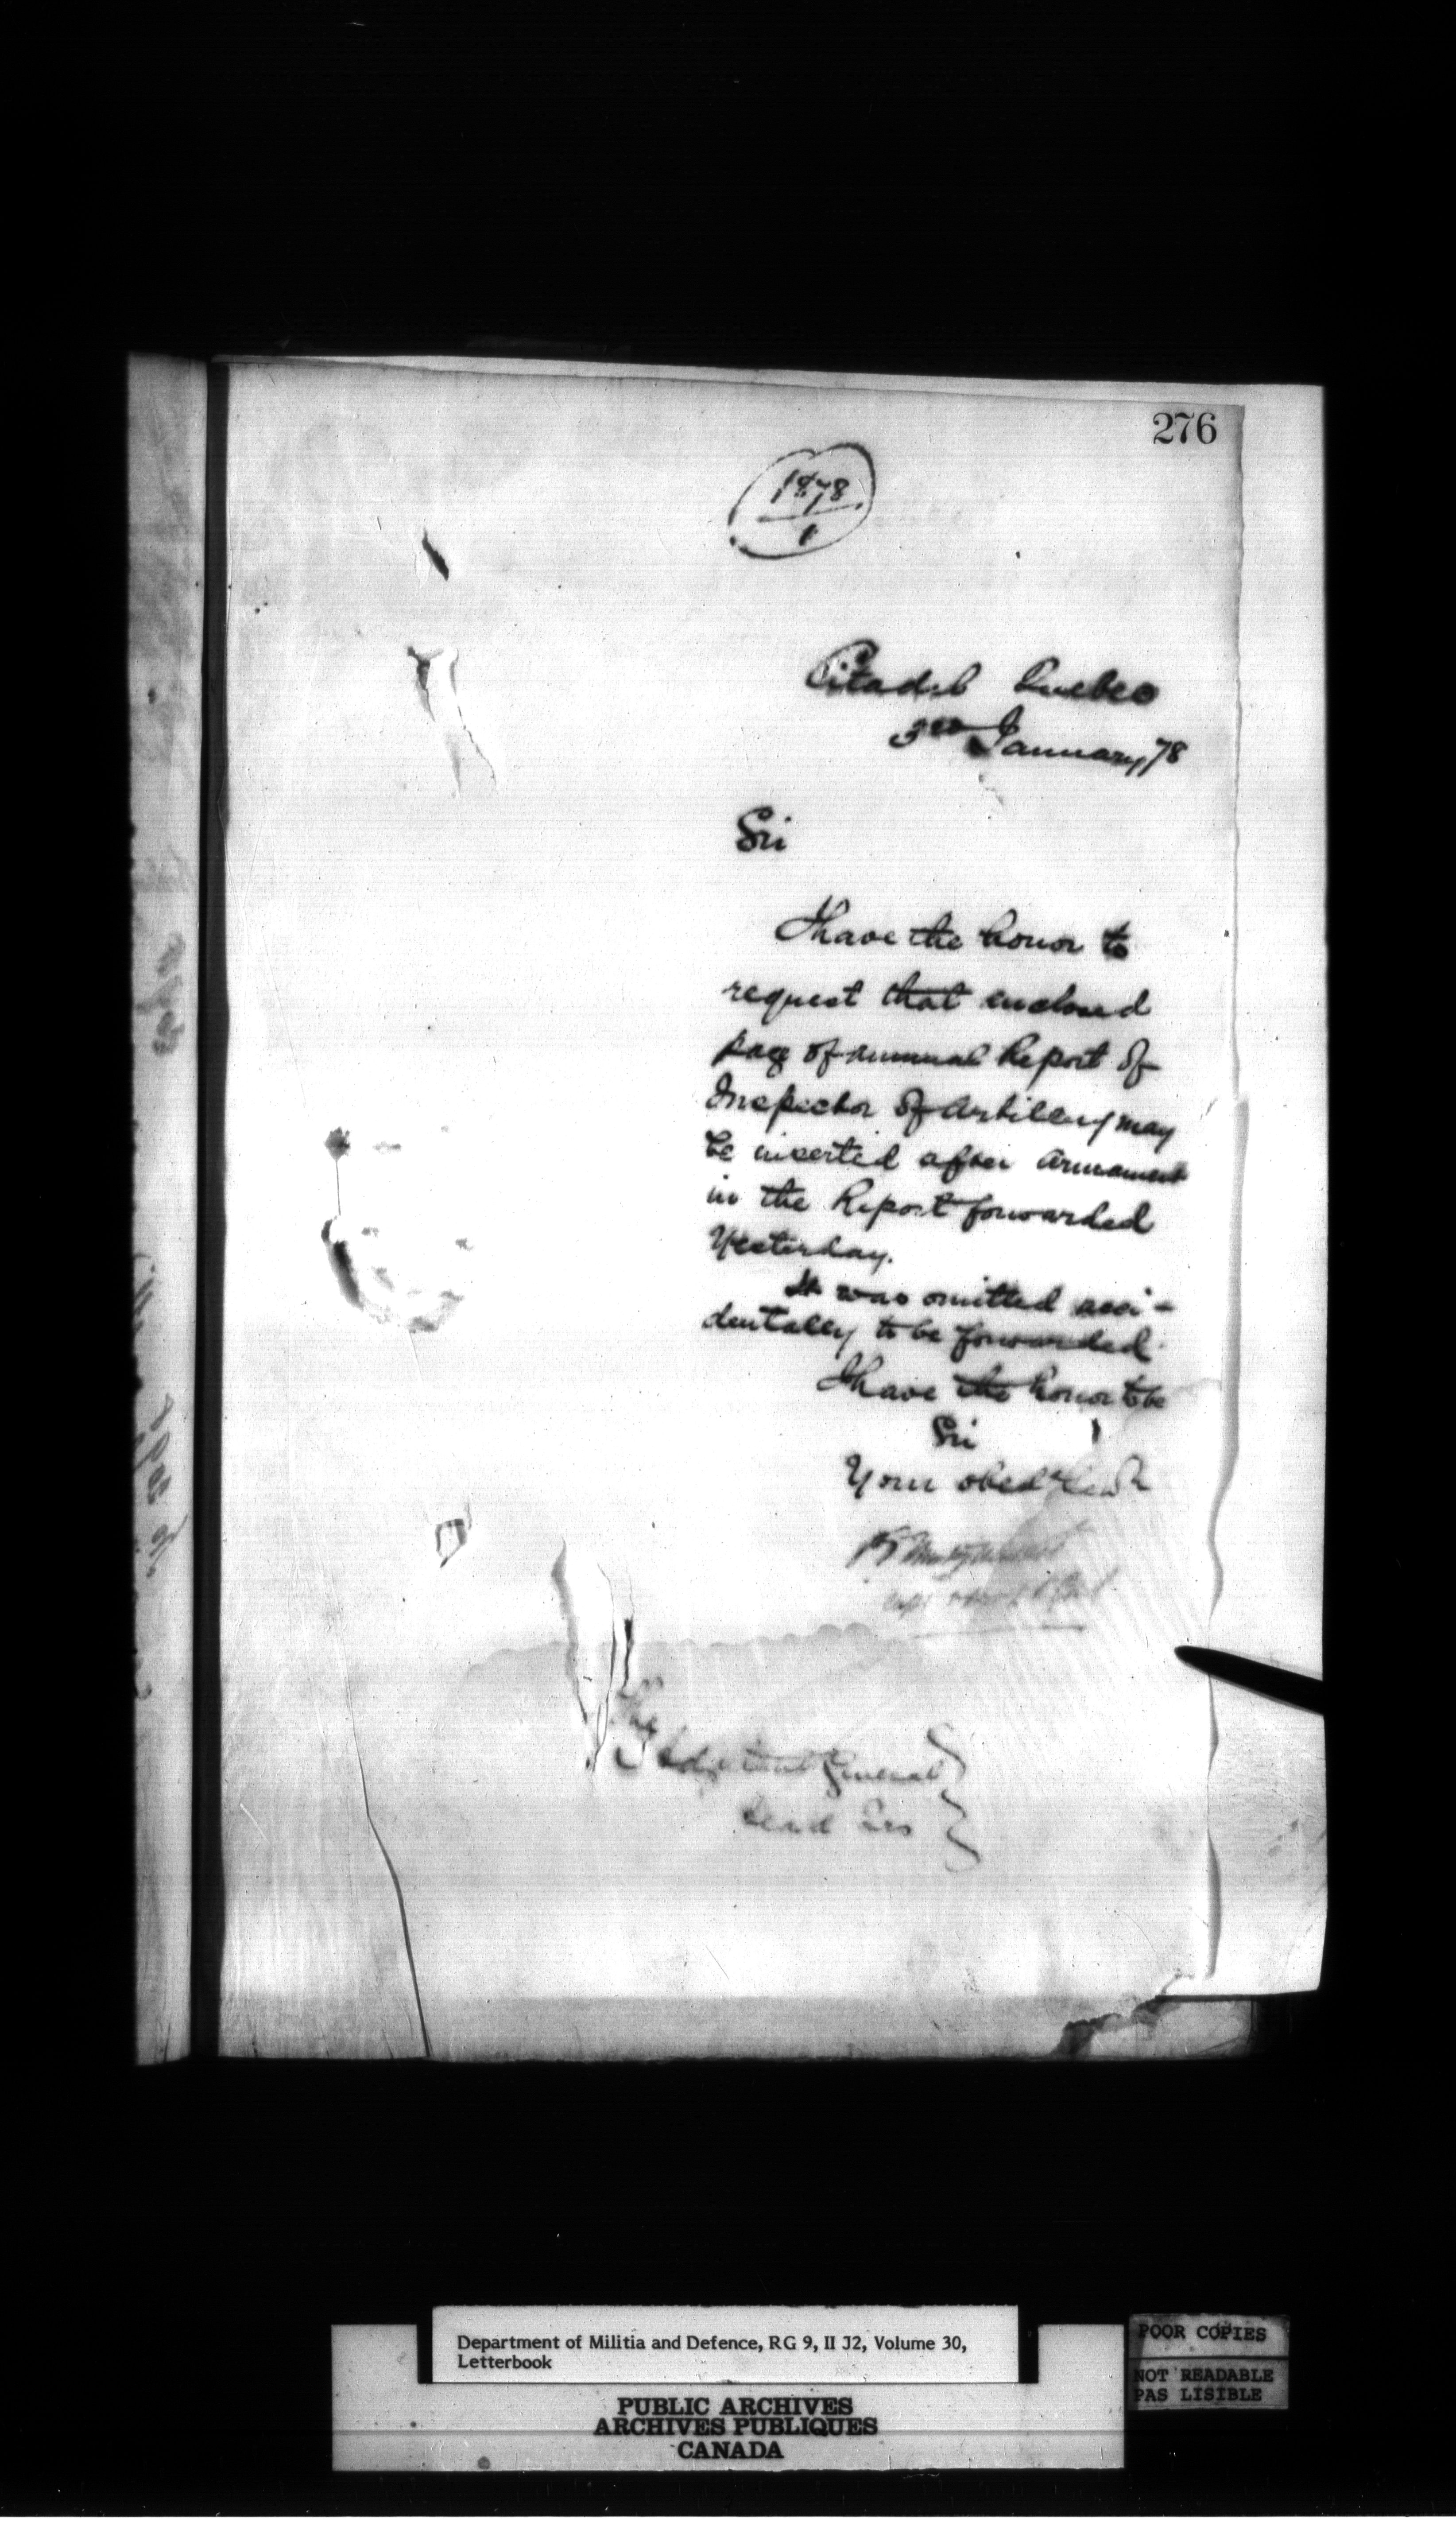 276
1878
1
Citadel Quebec
3rd January 78
Sir
I have the honor to
request that enclosed
page of annual Report of
Inspector of Artillery may
be inserted after armament
in the Report forwarded
Yesterday.
It was omitted acci-
dentally to be forwarded
I have the honor to be
Sir
Your obedt
The
Adjutant General
Head Qrs
Department of Militia and Defence, RG 9, II J2, Volume 30,
Letterbook
PUBLIC ARCHIVES
ARCHIVES PUBLIQUES
CANADA
POOR COPIES
NOT READABLE
PAS LISIBLE